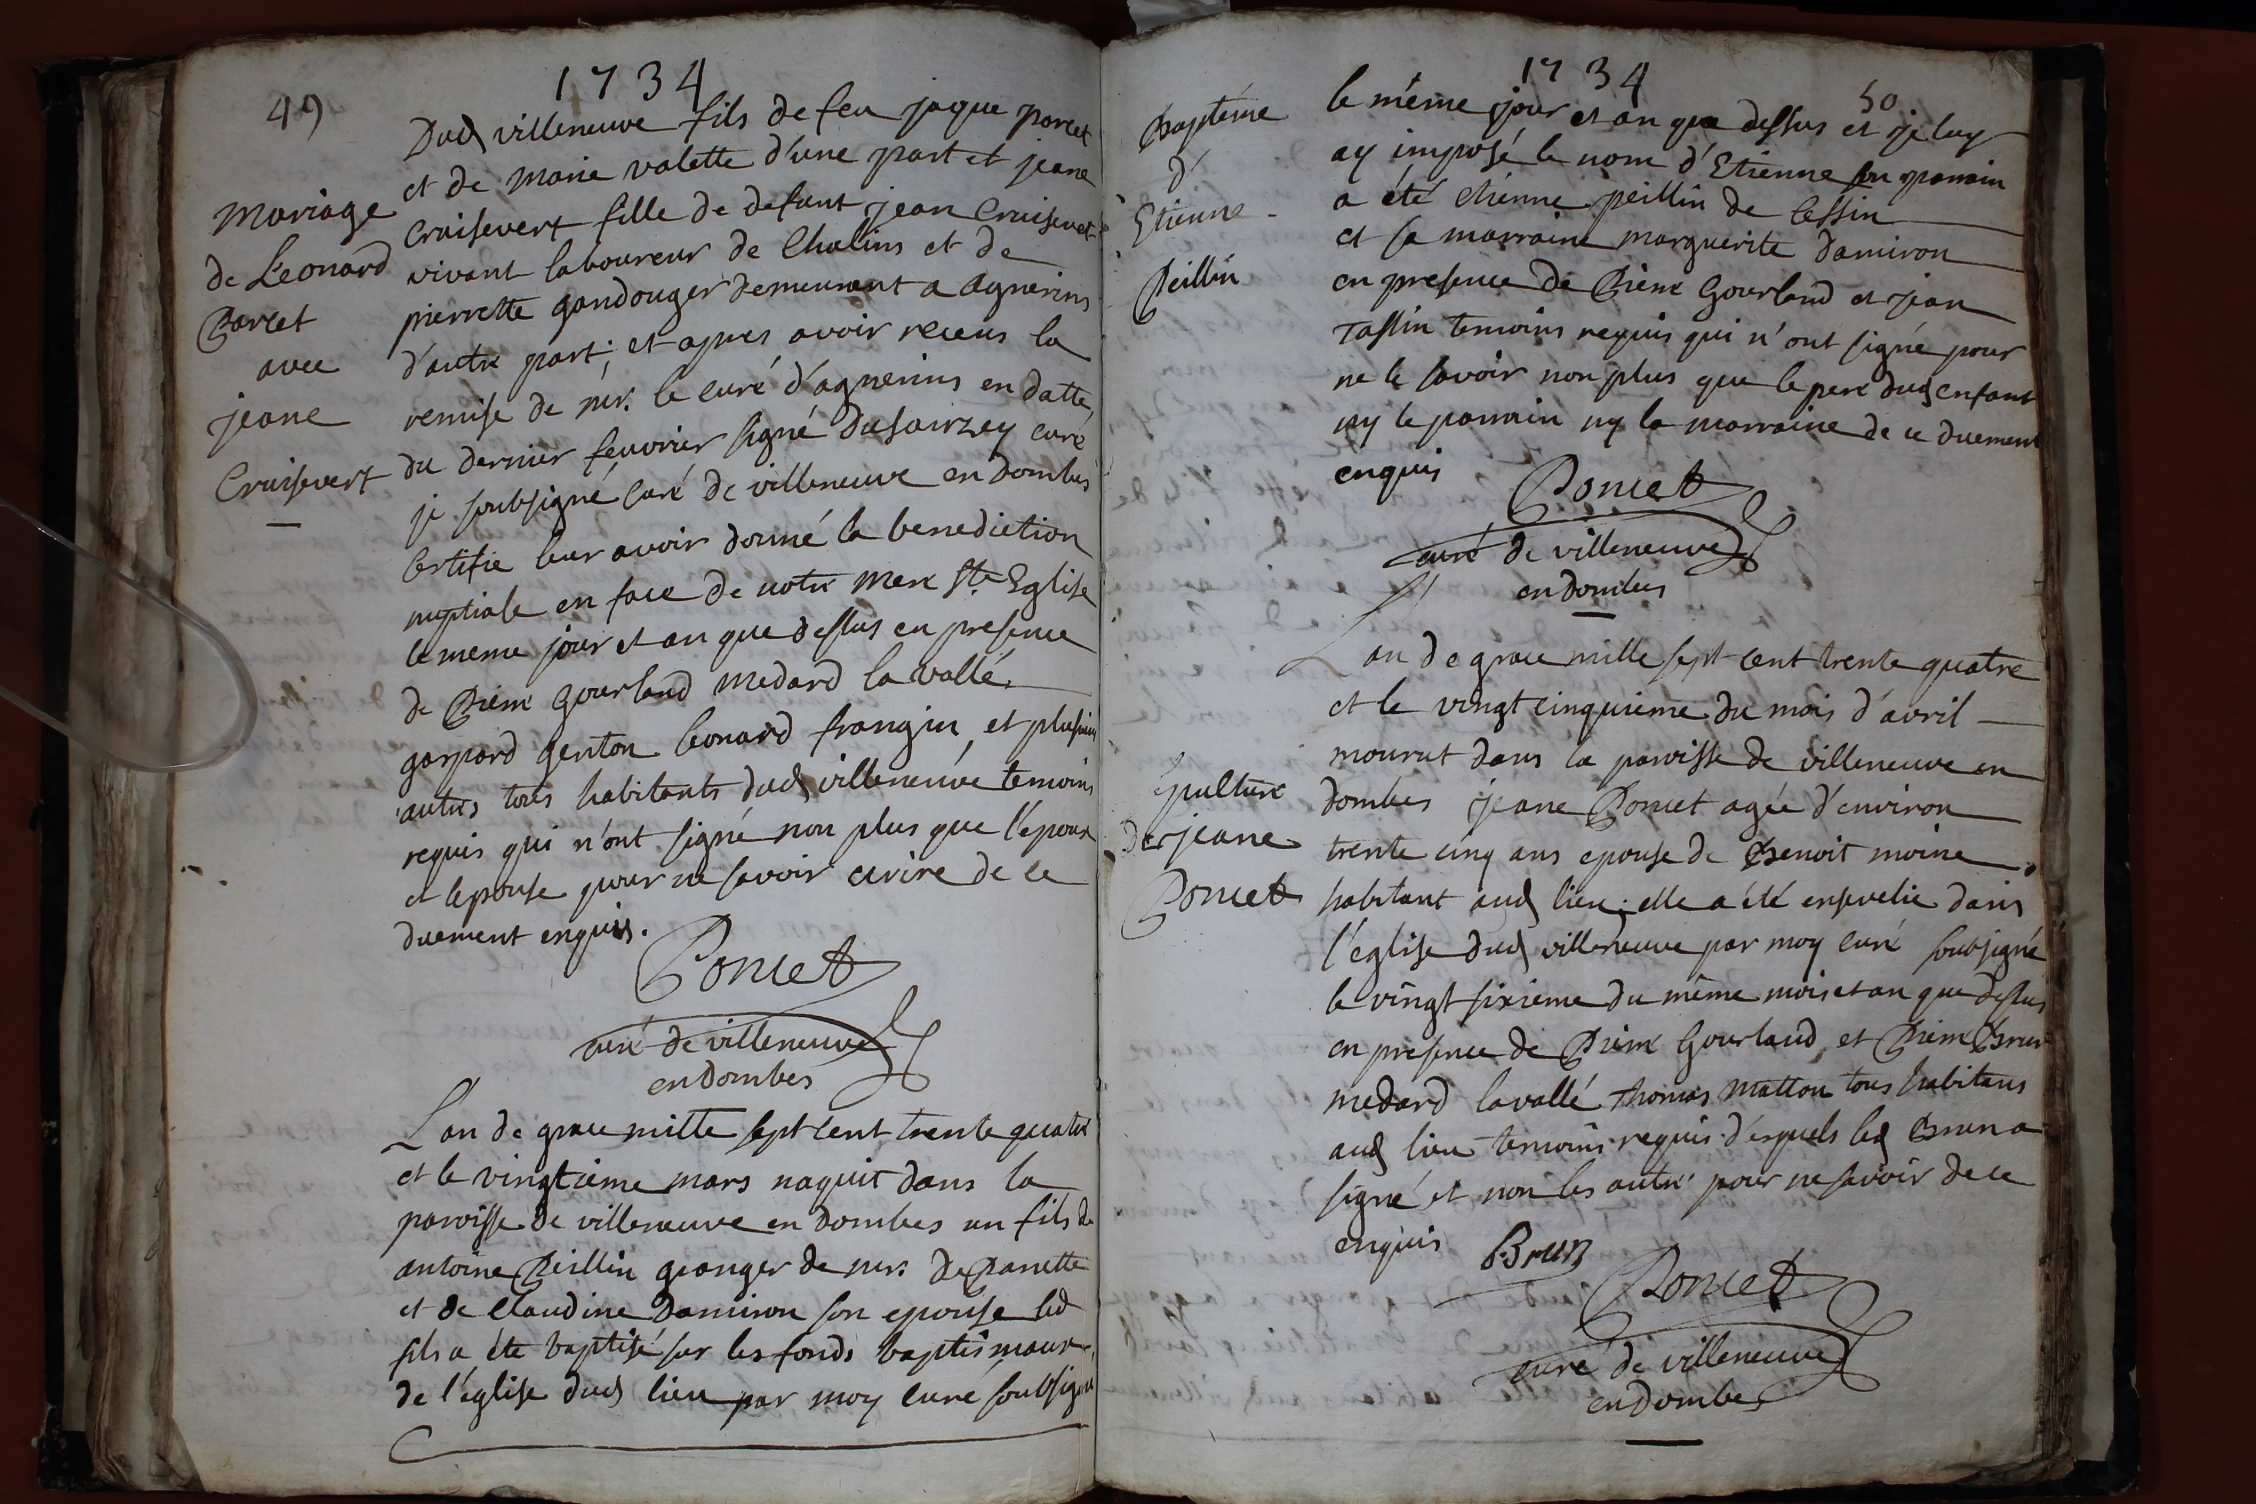 1734
49
Mariage
de Leonard
Porcet
avec
jeane
Cruisevert
Dud villeneuve fils de feu jaque porcet
et de marie valette d'une part et jeane
cruisevert fille de defunt jean Cruisevert
vivant laboureur de Chalins et de
pierrette gandouger demeurant a Agnerins
d'autre part; et apres avoir receus la
remise de mr. le curé d'agnerins en datte
du dernier feuvrier signé Dusauzey curé
je soubsigné curé de villeneuve en dombes
Certifie leur avoir donné la benediction
nuptiale en face de notre mere Ste Eglise
le meme jour et an que dessus en presence
de Pierre Gourland medard la vallé
gaspard genton leonard frangin et plusieurs
autres tous habitants dud villeneuve temoins
requis qui n'ont signé non plus que l'epoux
et lepouse pour ne savoir ecrire de ce
duement enquis.
Poncet
curé de villeneuve
en Dombes
L'an de grace mille sept cent trente quatre
et le vingtieme mars naquit dans la
paroisse de villeneuve en dombes un fils de
antoine Peillin granger de mr. De Panette
et de Claudine Damiron son epouse led
fils a éte baptisé sur les fonds baptismaux
de l'église dud lieu par moy curé soubsigné
1734
50
Baptéme
d'
Etienne
Peillin
le méme jour et an que dessus et je luy
ay imposé le nom d'Etienne son parrain
a été etienne peillin de Cessin
et sa marraine marguerite Damiron
en presence de Pierre Gourland et jean
Tassin temoins requis qui n'ont signé pour
ne le savoir non plus que le pere dud enfant
ny le parrain ny la marraine de ce duement
enquis
Poncet
curé de villeneuve
en dombes
L'an de grace mille sept cent trente quatre
et le vingt cinquieme du mois d'avril
mourut dans la paroisse de villeneuve en
Sepulture
de jeane
Poncet
dombes jeane Poncet agée d'environ
trente cinq ans epouse de Benoit moine
habitant aud lieu; elle a été ensevelie dans
l'église dud villeneuve par moy curé soubsigné
le vingt sixieme du même mois et an que dessus
en presence de Pierre Gourland et Pierre Brun
medard lavallé thomas Matton tous habitans
aud lieu temoins requis d'esquels led Brun a
signé et non les autre pour ne savoir de ce
enquis
Brun
Poncet
curé de villeneuve
en Dombes